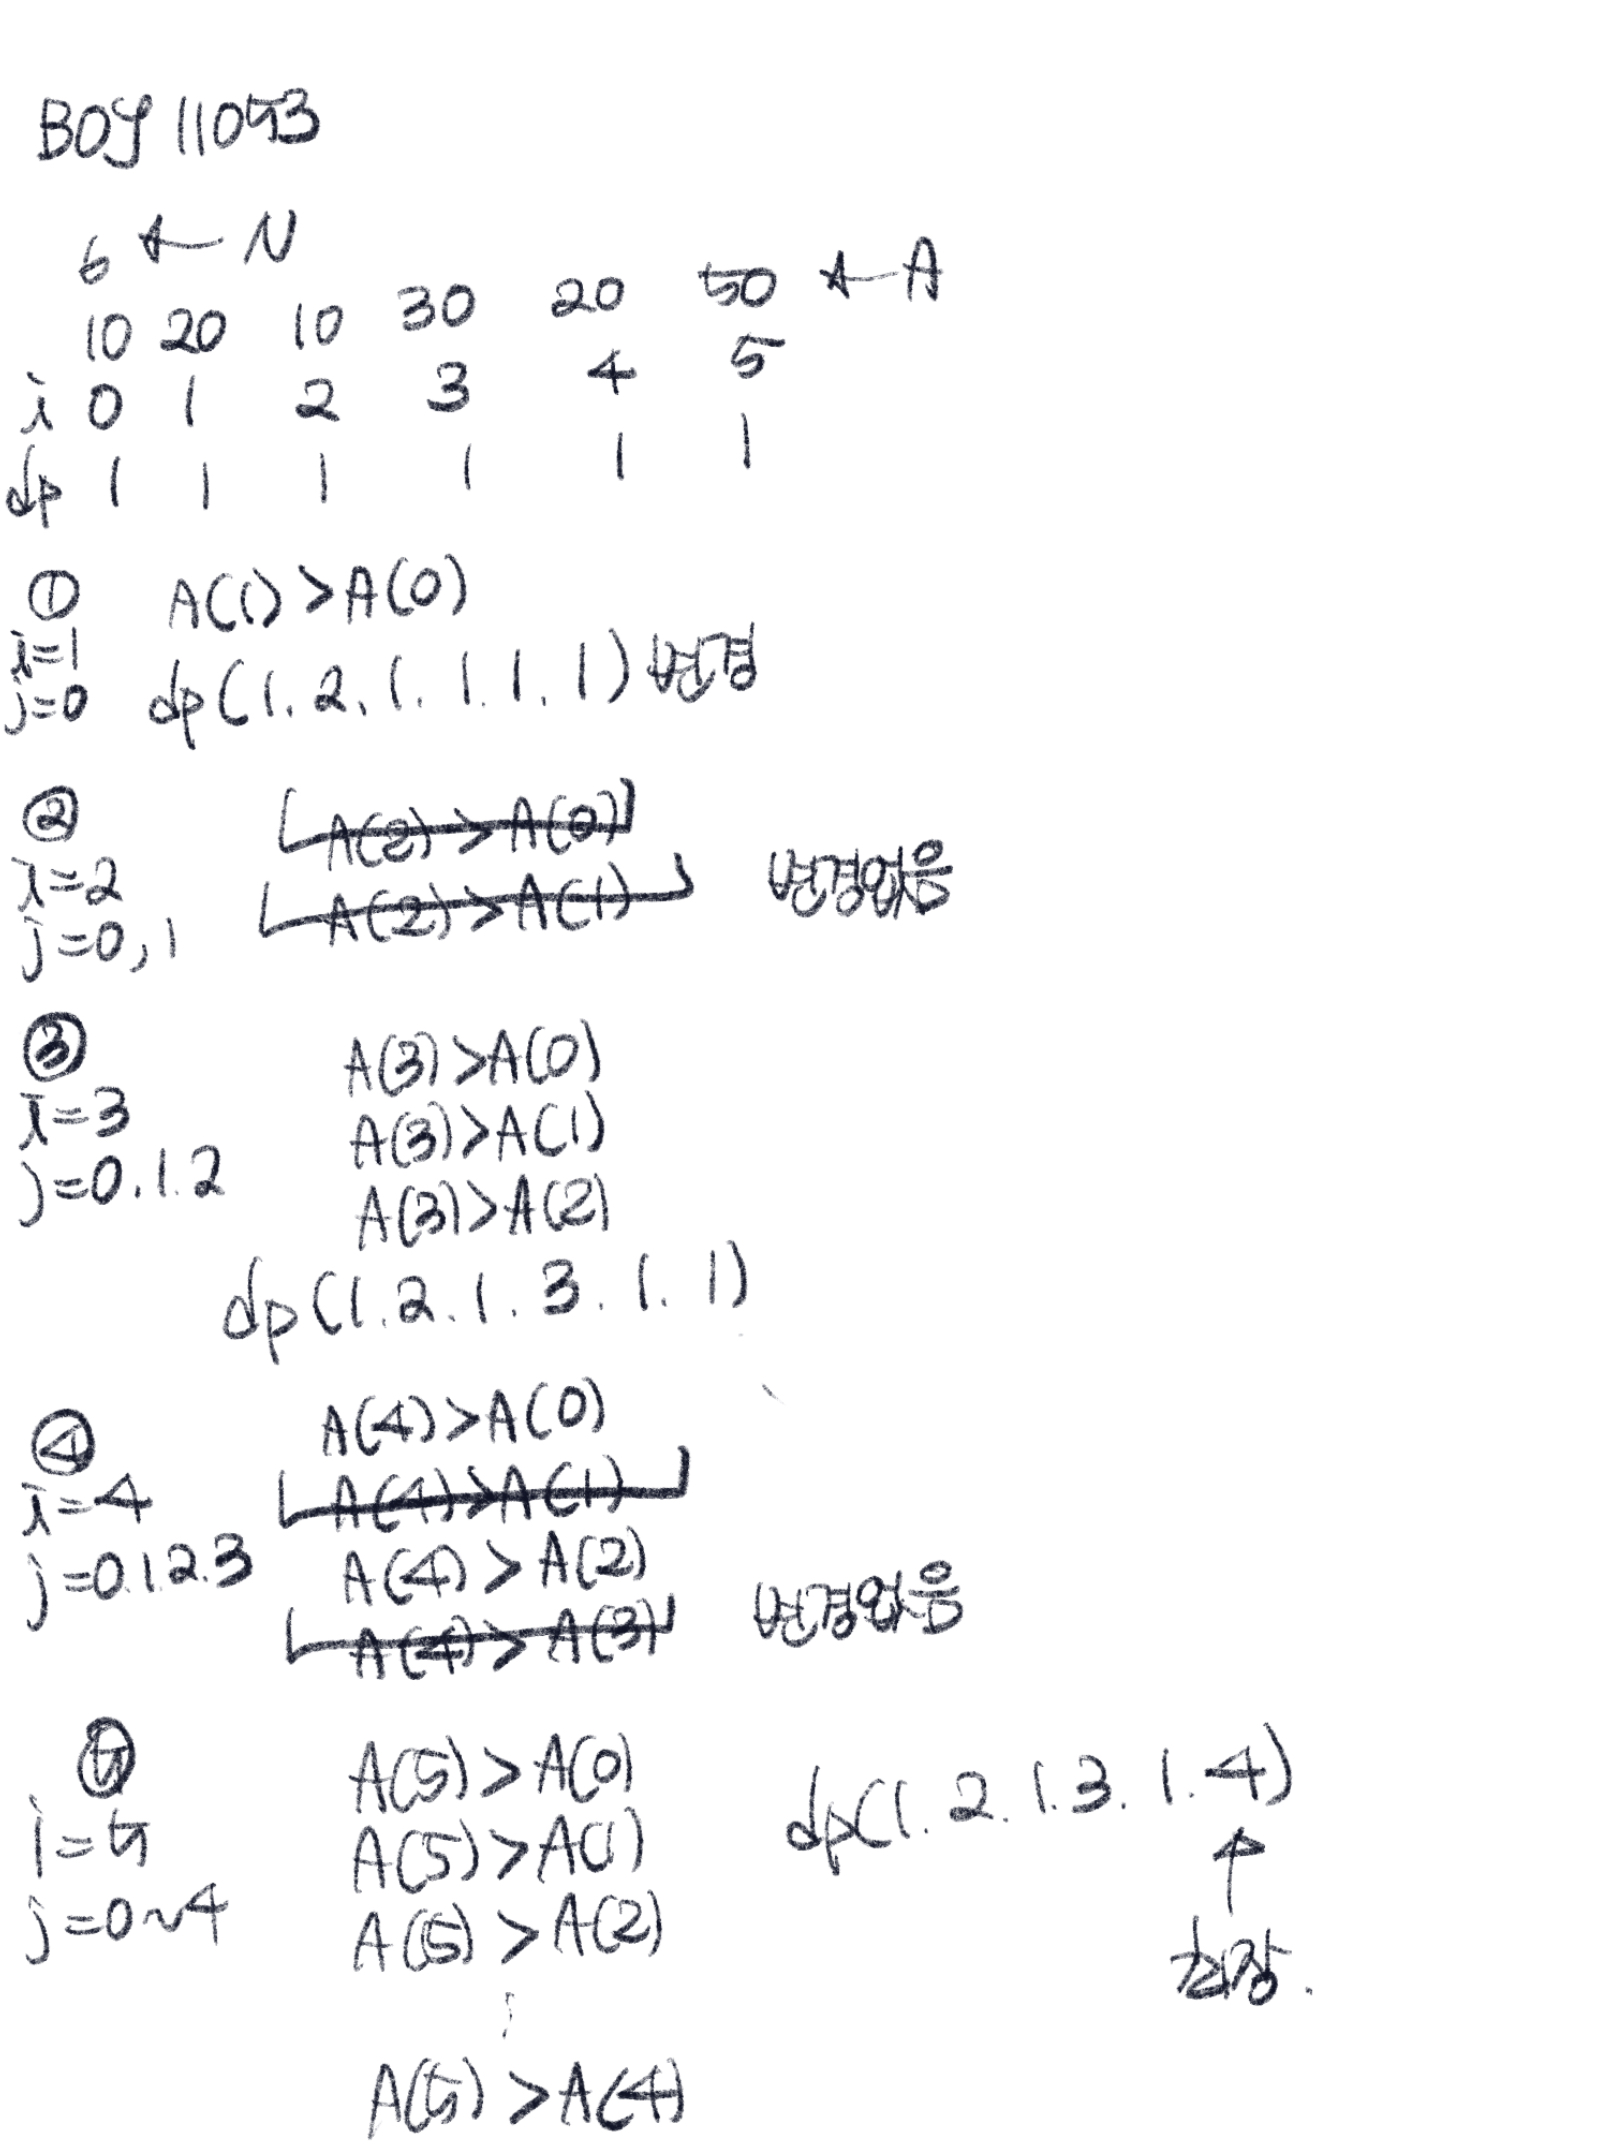 BOJ 11053
6 ← N
10 20 10 30 20 50 ← A
i 0 1 2 3 4 5
dp 1 1 1 1 1 1
① A(1) > A(0)
i=1
j=0 dp(1. 2. 1. 1. 1. 1) 변경
② A(2) > A(0)
i=2 A(2) > A(1) 변경없음
j=0, 1
③ A(3) > A(0)
i=3 A(3) > A(1)
j=0. 1. 2 A(3) > A(2)
dp(1. 2. 1. 3. 1. 1)
④ A(4) > A(0)
i=4 A(4) > A(1)
j=0.1.2.3 A(4) > A(2)
A(4) > A(3) 변경없음
⑤ A(5) > A(0) dp(1. 2. 1. 3. 1. 4)
i=5 A(5) > A(1) ↑
j=0~4 A(5) > A(2) 최장.
⋮
A(5) > A(4)